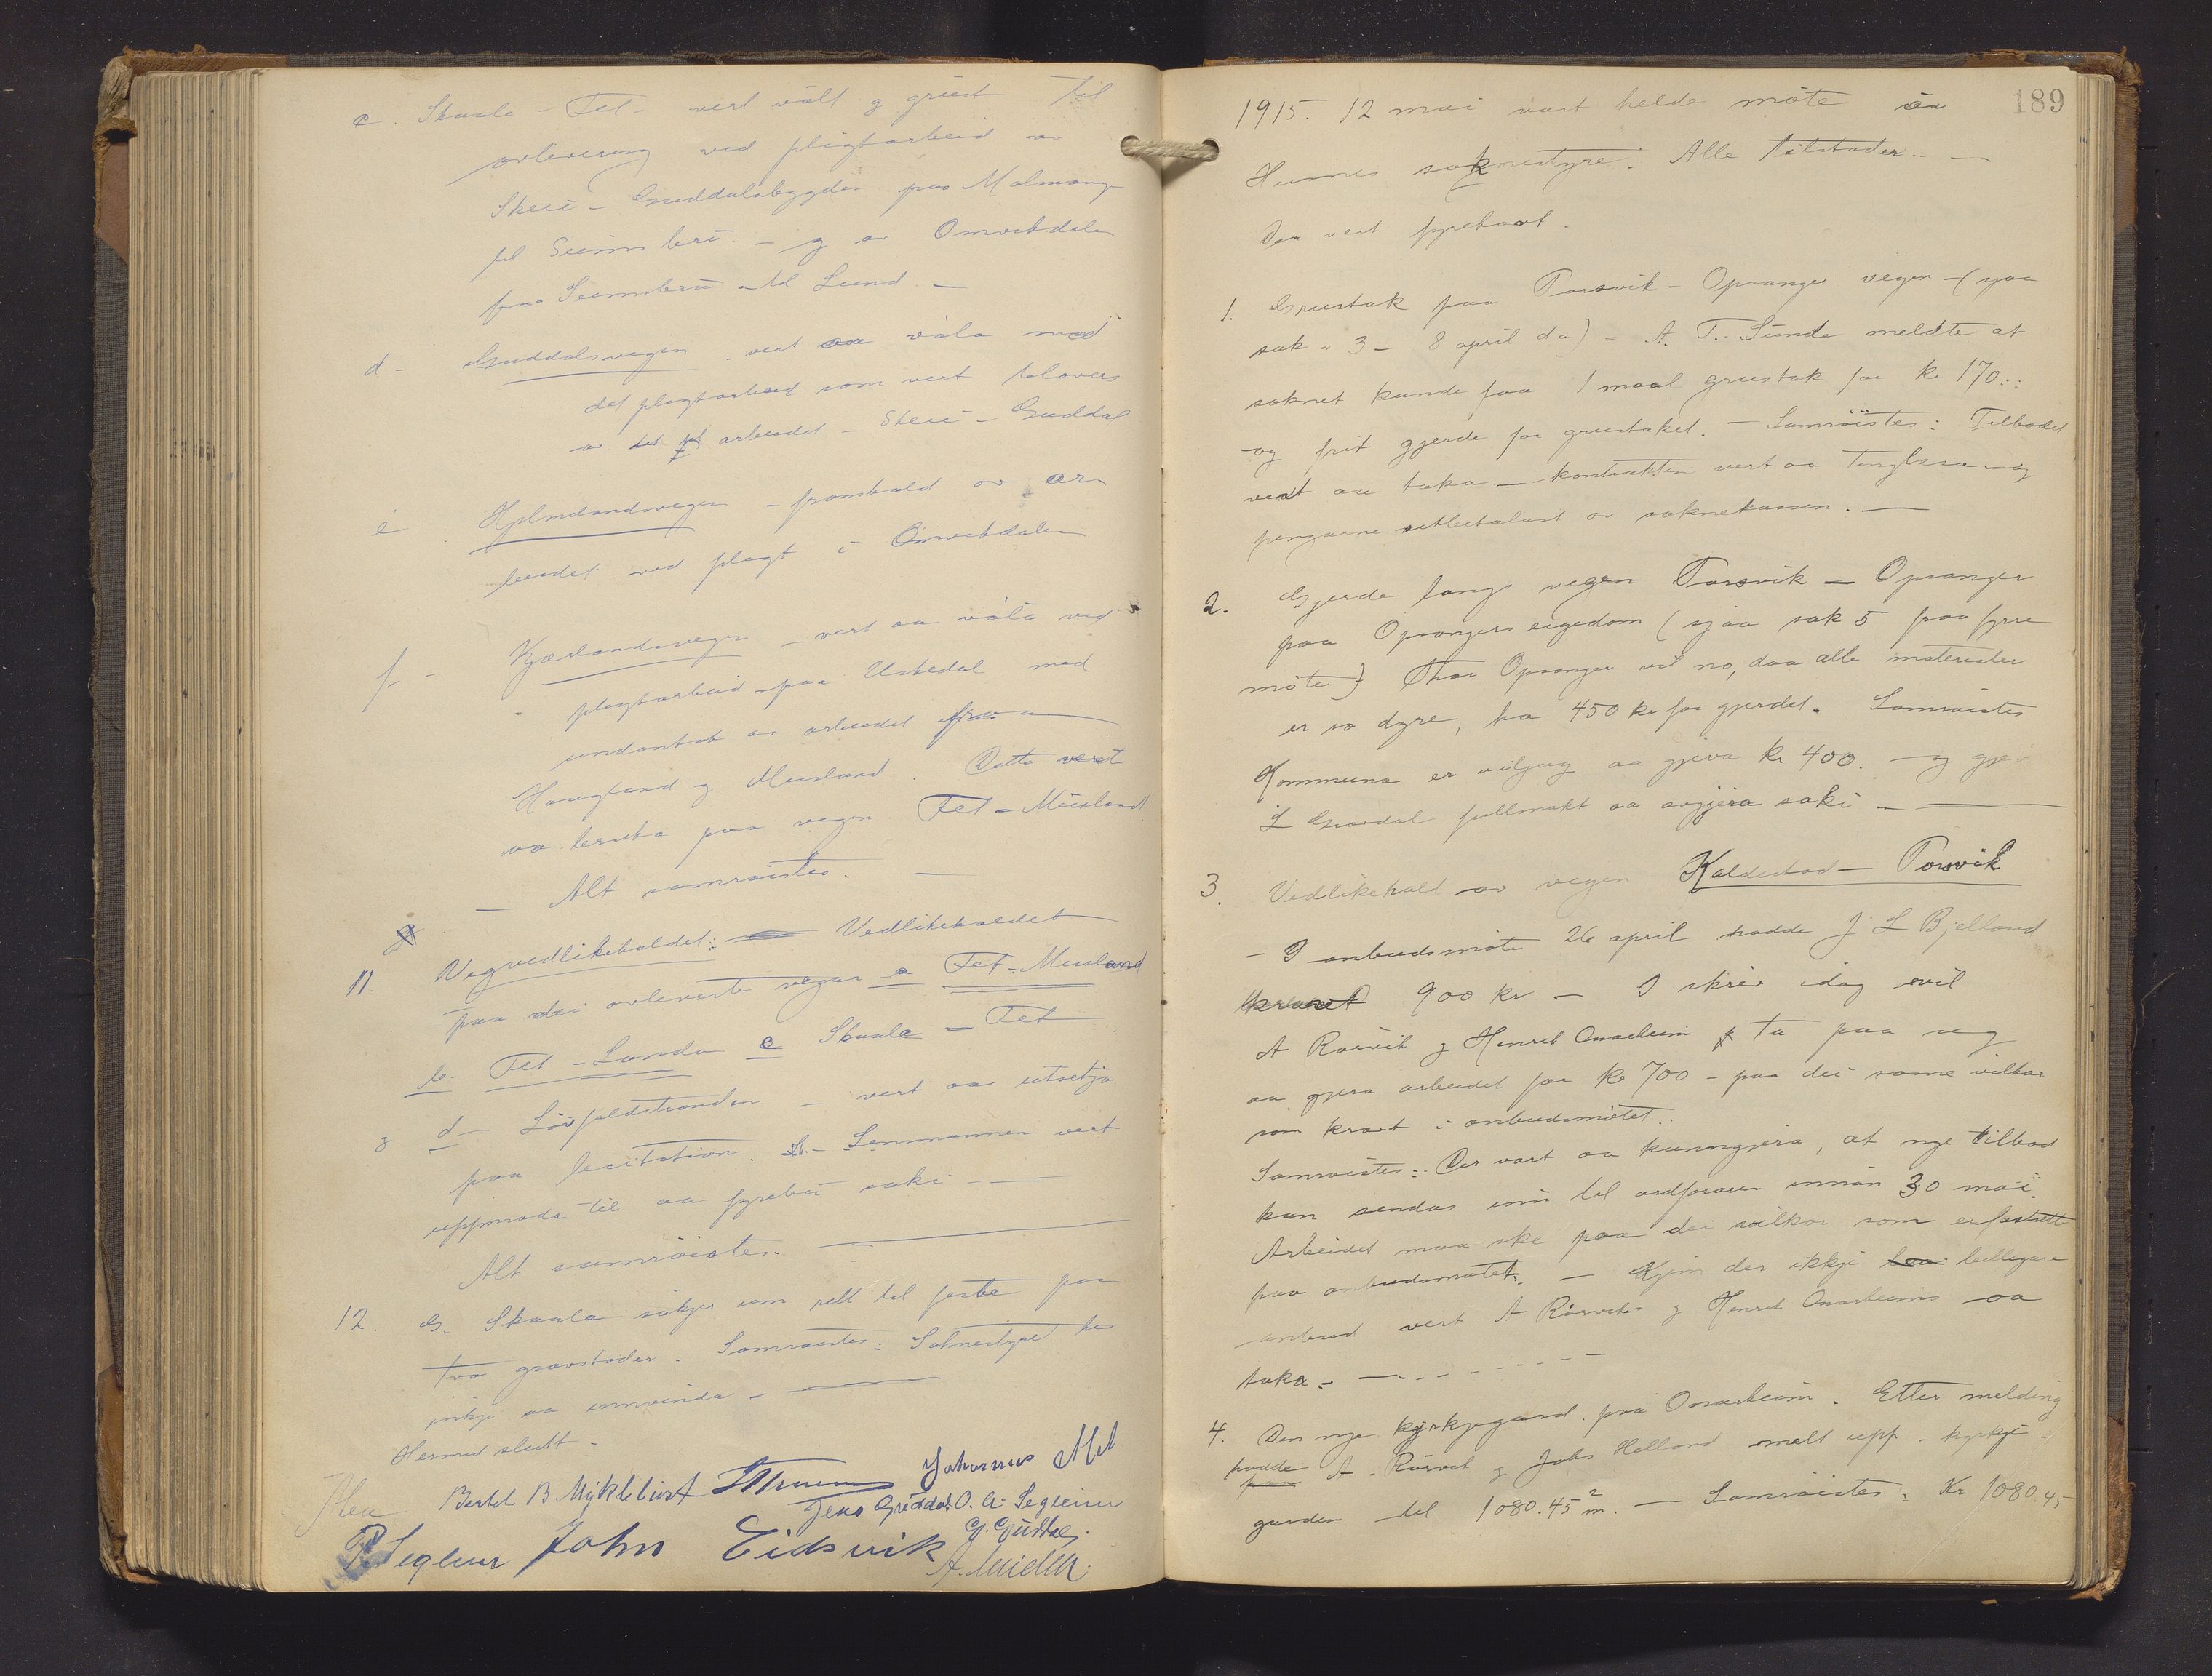 c. Skaala - Fet - vert vølt og gruset til
avlevering ved pligtarbeid av
Skeie - Guddalsbygden paa Malmanger
til Seimsbru. - og av Omvikdalen
fraa Seimsbru til Lund. -
d - Guddalsvegen - vert aa vøla med
det pligtarbeid som vert tilovers
av det arbeidet - Skeie - Guddal
e Hjelmelandsvegen - framhald av ar-
beidet ved pligt i Omvikdalen
f - Kjærlandsvegen - vert aa vøla ved
pligtarbeid paa Uskedal med
undantak av arbeidet fraa
Haugland og Musland. Dette vert
aa bruka paa vegen Fet - Musland
- Alt samrøistes. -
11. Vegvedlikehaldet: Vedlikehaldet
paa dei avleverte vegar a Fet - Musland
b. Fet - Sanda c Skaala - Fet
og d - Løfaldstranden - vert aa utsetja
paa licitation. - Lensmannen vert
uppmoda til aa fyrebu saki - -
Alt samrøistes. -
12. G. Skaala søkjer um rett til feste paa
tvo gravstader. Samrøistes: Soknestyret he
inkje aa innvenda - -
Hermed slutt -
Bertel B. Myklebust Johannes Mel
Jens Guddal O. A. Segleim
Segleim John Eidsvik G. Guddal
A. Meidell
189
1915. 12 mai vart helde møte av
Husnes soknestyre. Alle tilstader. -
Der vert fyrehavt.
1. Grustak paa Porsvik - Opsanger vegen - (sjaa
sak 3 - 8 april da) - A. T. Sunde meldte at
soknet kunde faa 1 maal grustak for kr 170.
og frit gjerde for grustaket. - Samrøistes: Tilbodet
vert aa taka - kontrakten vert aa tinglesa - og
pengarne utbetalast av soknekassen. -
2. Gjerde langs vegen Porsvik - Opsanger
paa Opsangers eigedom (sjaa sak 5 paa fyrre
møte) Thor Opsanger vil no, daa alle materialer
er so dyre, ha 450 kr for gjerdet. Samrøistes
Kommuna er viljug aa gjeva kr 400. - og gjev
L Guddal fullmakt aa avgjera saki - -
3. Vedlikehald av vegen Kaldestad - Porsvik
- I anbudsmøte 26 april hadde J L Bjelland
kravt 900 kr - I skriv idag vil
A Røsvik og Henrik Onarheim ta paa seg
aa gjera arbeidet for kr 700 - paa dei same vilkor
som kravt i anbudsmøtet.
Samrøistes: Der vart aa kunngjera, at nye tilbod
kan sendas inn til ordføraren innan 30 mai.
Arbeidet maa ske paa dei vilkor som er fastsatte
paa anbudsmøtet. - Kjem der ikkje billegare
anbud vert A Røsviks og Henrik Onarheims aa
taka. -
4. Den nye kyrkjegard paa Onarheim. Etter melding
hadde A. Røsvik og Johs Helland mælt upp kyrkje-
garden til 1080.45 m². - Samrøistes: Kr 1080.45